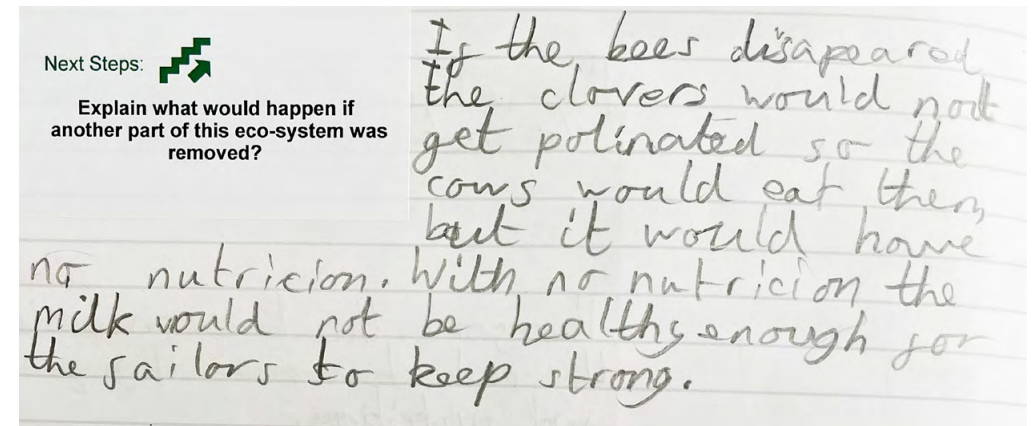 Next Steps:
Explain what would happen if
another part of this eco-system was
removed?
If the bees disapeared
the clovers would not
get polinated so the
cows would eat them
but it would have
no nutricion. With no nutricion the
milk would not be healthy enough for
the sailors to keep strong.